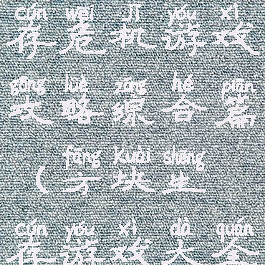 cún wēi jī yóu xì
存危机游戏
gōng lüè zōng hé piān
攻略综合篇
fāng kuài shēng
(方块生
cún yóu xì dà quán
存游戏大全